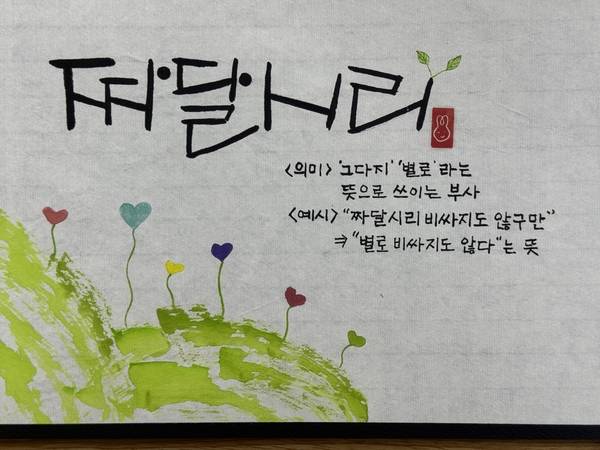 짜달시리
<의미> '그다지' '별로'라는
뜻으로 쓰이는 부사
<예시> "짜달시리 비싸지도 않구만"
⇒ "별로 비싸지도 않다"는 뜻